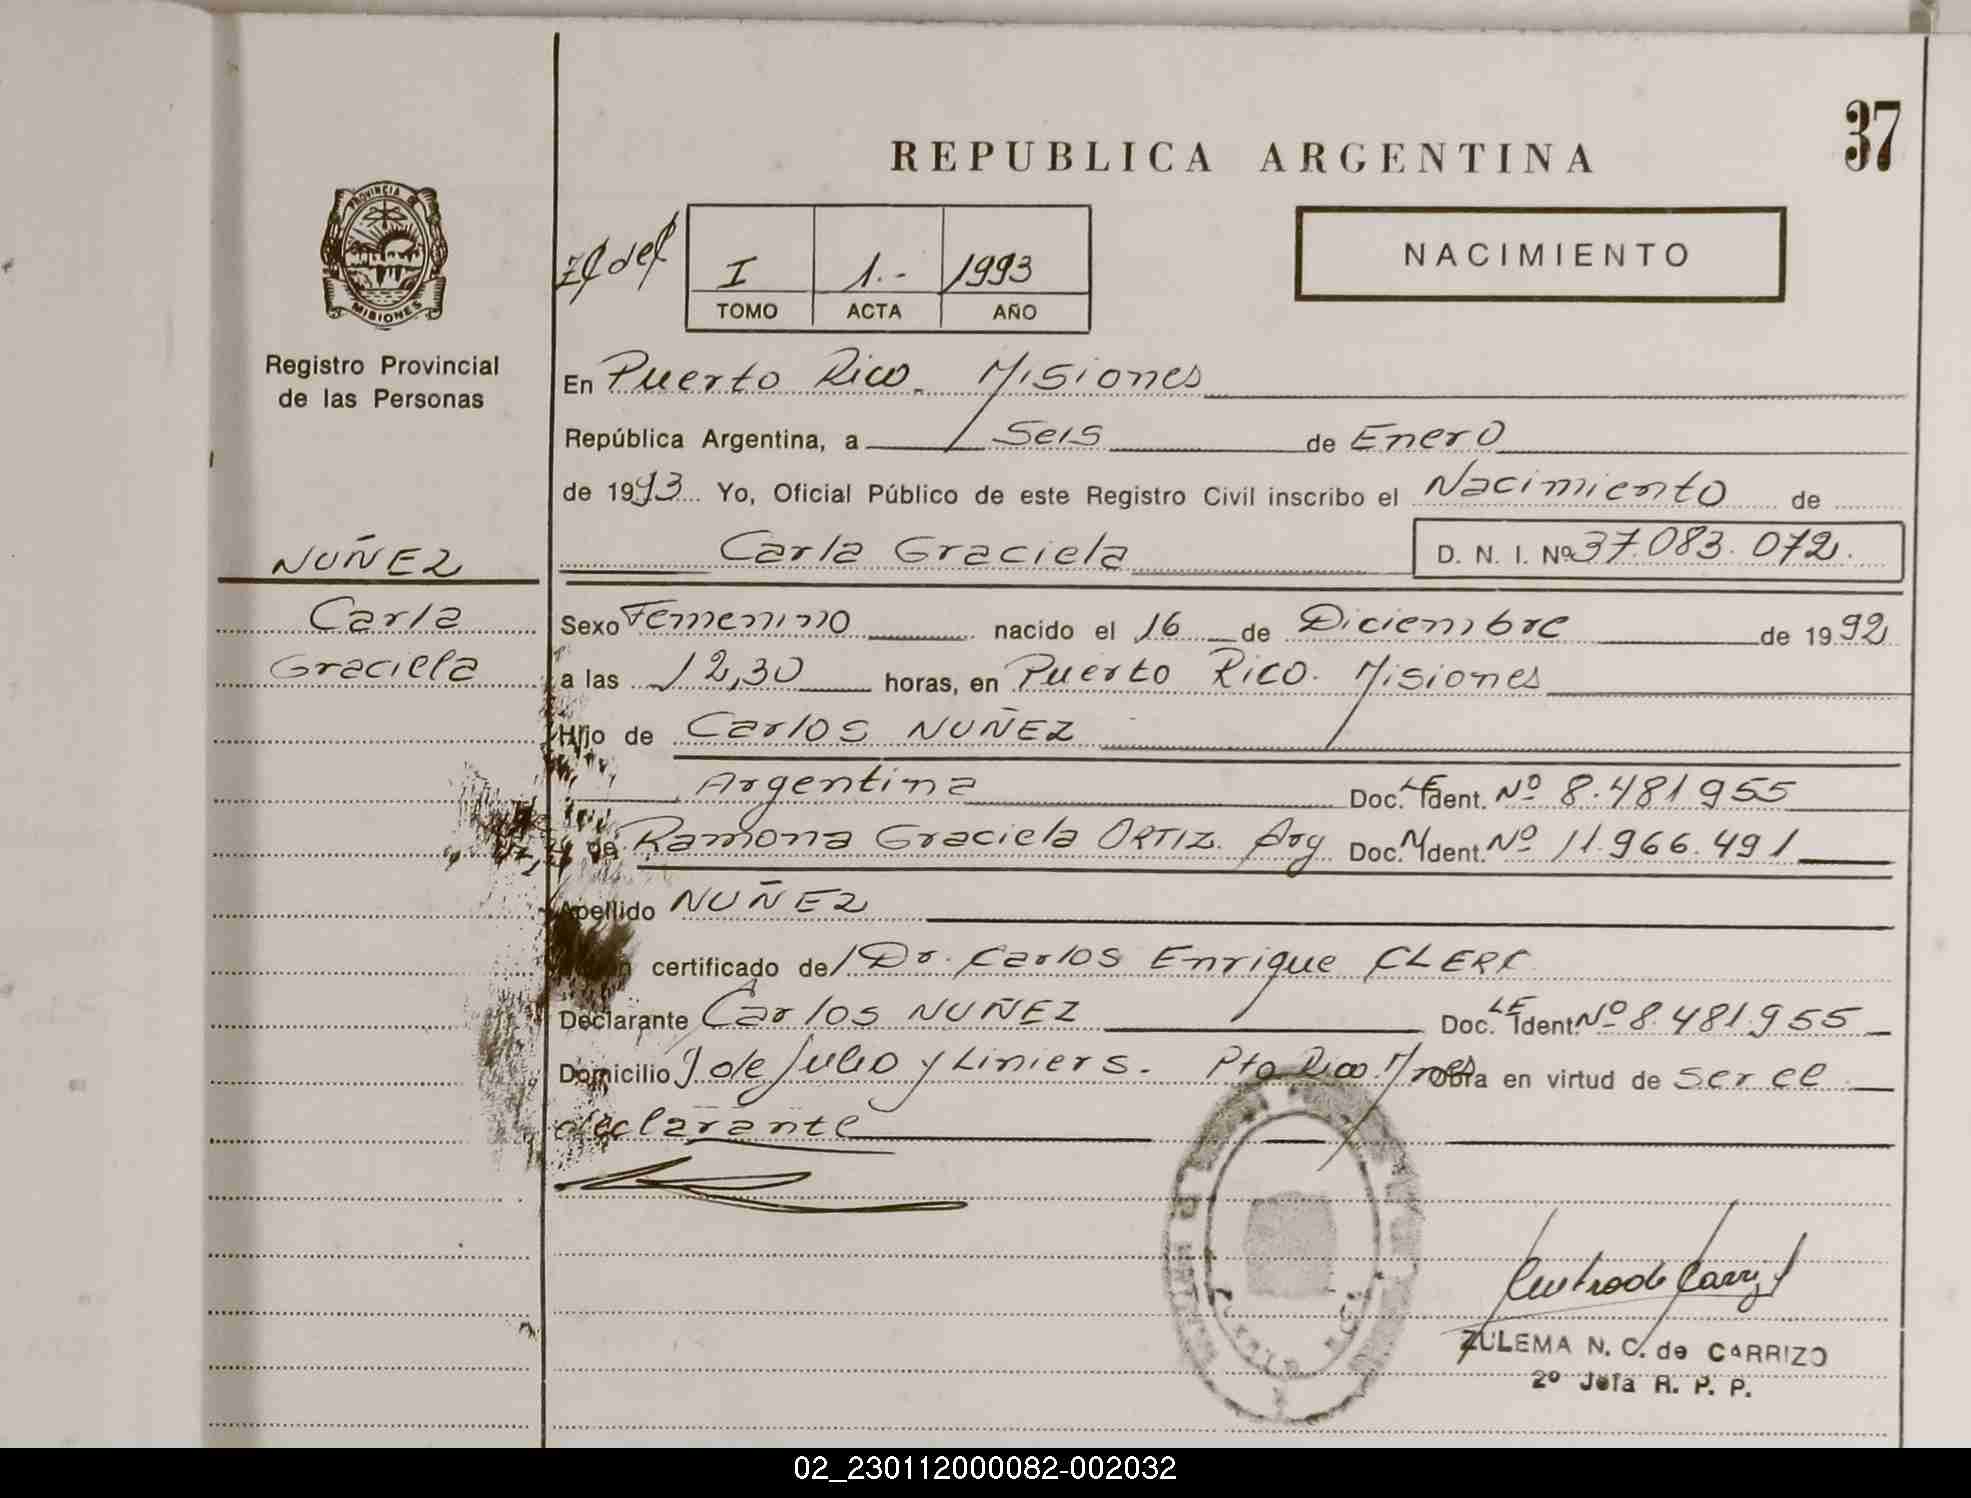 37
REPUBLICA ARGENTINA
PROVINCIA DE
MISIONES
I 1.- 1993
TOMO ACTA AÑO
NACIMIENTO
Registro Provincial
de las Personas
En Puerto Rico. Misiones
República Argentina, a Seis de Enero
de 1993 Yo, Oficial Público de este Registro Civil inscribo el Nacimiento de
NUÑEZ
Carla Graciela D. N. I. Nº 37.083.072.
Carla
Graciela
Sexo Femenino nacido el 16 de Diciembre de 1992
a las 12,30 horas, en Puerto Rico. Misiones
Hijo de Carlos NUÑEZ
Argentina Doc. LE Ident. Nº 8.481955
de Ramona Graciela ORTIZ. Arg Doc. Ident. Nº 11.966.491
Apellido NUÑEZ
certificado de Dr. Carlos Enrique CLERC
Declarante Carlos NUÑEZ Doc. LE Ident. Nº 8.481.955
Domicilio 9 de Julio y Liniers. Pto Rico Mnes Obra en virtud de ser el
declarante
ZULEMA N. C. de CARRIZO
2º Jefa R. P. P.
02_230112000082-002032